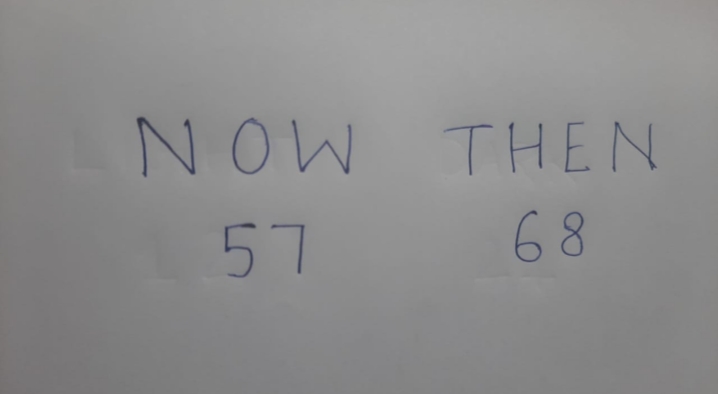 NOW THEN
57 68